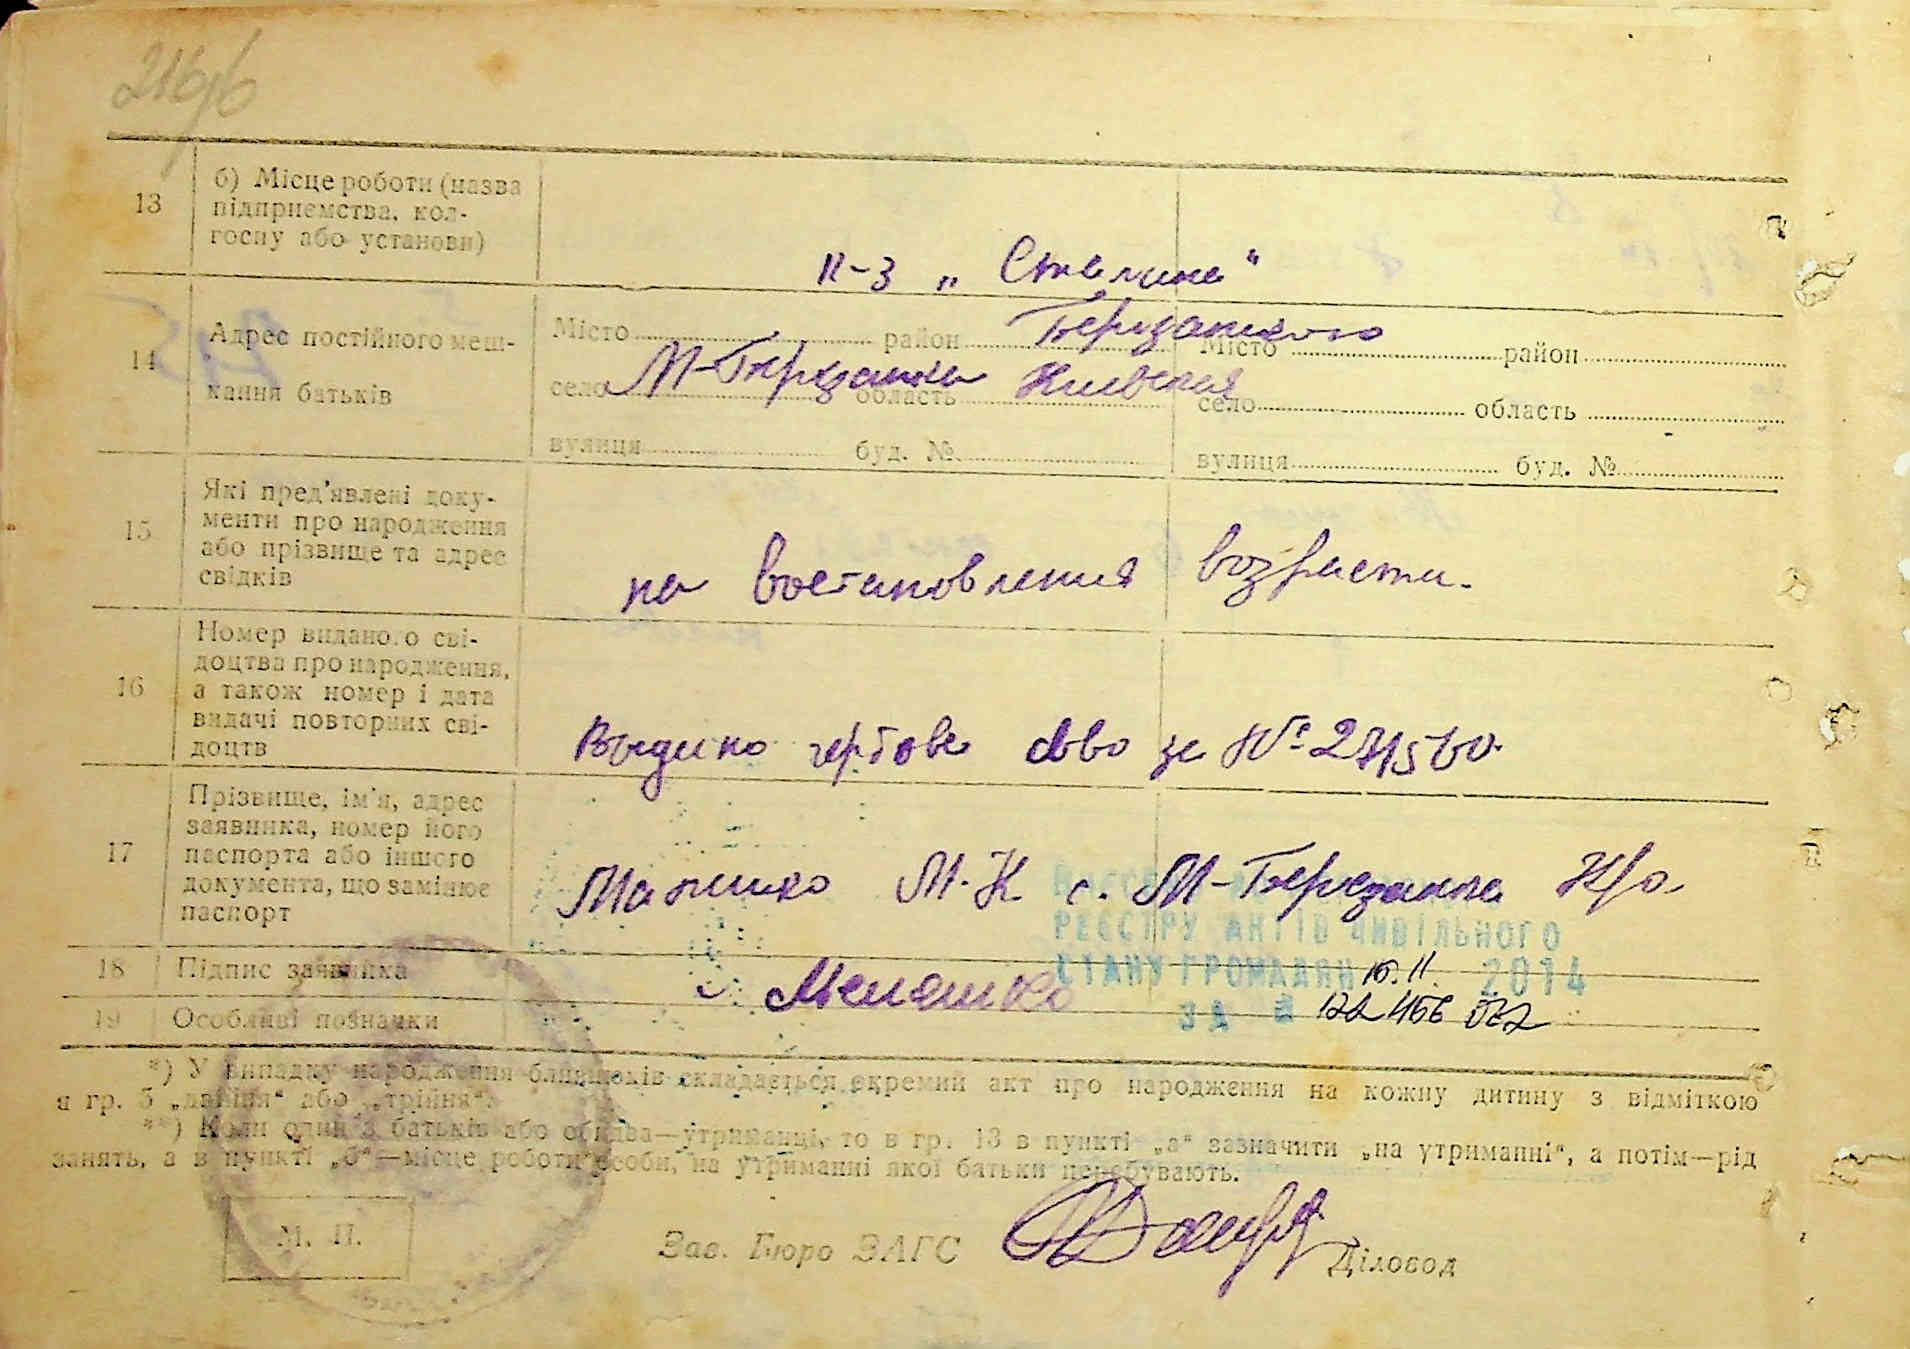 13
б) Місце роботи (назва
підприємства, кол-
госпу або установи)
к-з „Сталина"
14
Адрес постійного меш-
кання батьків
Місто район Березанского
село М-Березанка область Киевская
вулиця буд. №
Місто район
село область
вулиця буд. №
15
Які пред'явлені доку-
менти про народження
або прізвище та адрес
свідків
на востановления возраста.
16
Номер виданого сві-
доцтва про народження,
а також номер і дата
видачі повторних сві-
доцтв
за №
17
Прізвище, ім'я, адрес
заявника, номер його
паспорта або іншого
документа, що замінює
паспорт
М. К. с. М-Березанка
РЕЄСТРУ АКТІВ ЦИВІЛЬНОГО
СТАНУ ГРОМАДЯН 2014
ЗА №
18
Підпис заявника
19
Особливі позначки
*) У випадку народження близнюків складається окремий акт про народження на кожну дитину з відміткою
в гр. 5 „двійня" або „трійня".
**) Коли один з батьків або обидва—утриманці, то в гр. 13 в пункті „а" зазначити „на утриманні", а потім—рід
занять, а в пункті „б"—місце роботи особи, на утриманні якої батьки перебувають.
М. П.
Зав. Бюро ЗАГС
Діловод